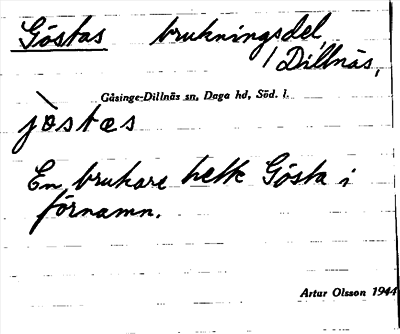 Göstas brukningsdel,
/ Dillnäs,
Gåsinge-Dillnäs sn, Daga hd, Söd. l.
jöstas
En brukare hette Gösta i
förnamn.
Artur Olsson 1944